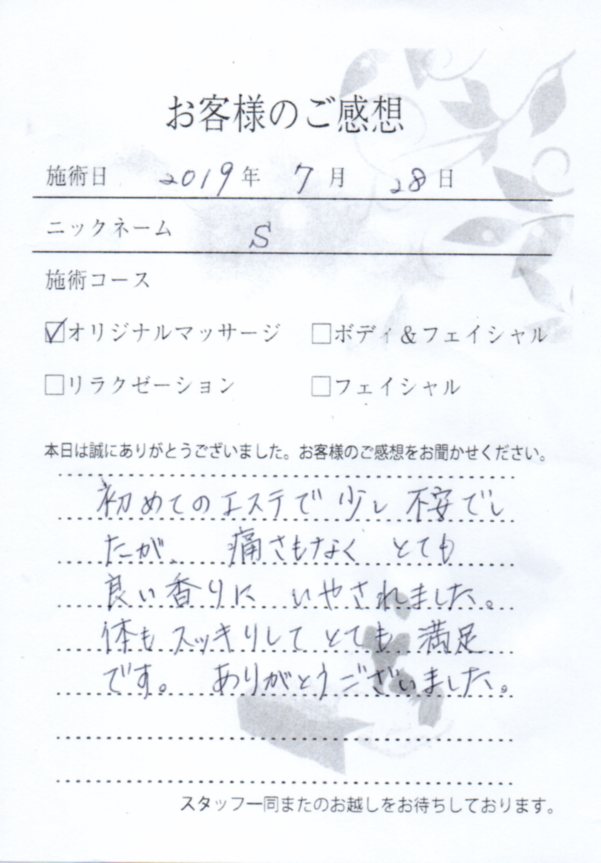 お客様のご感想
施術日 2019年 7月 28日
ニックネーム S
施術コース
☑オリジナルマッサージ □ボディ&フェイシャル
□リラクゼーション □フェイシャル
本日は誠にありがとうございました。お客様のご感想をお聞かせください。
初めてのエステで少し不安でし
たが、痛さもなくとても
良い香りにいやされました。
体もスッキリしてとても満足
です。ありがとうございました。
スタッフ一同またのお越しをお待ちしております。